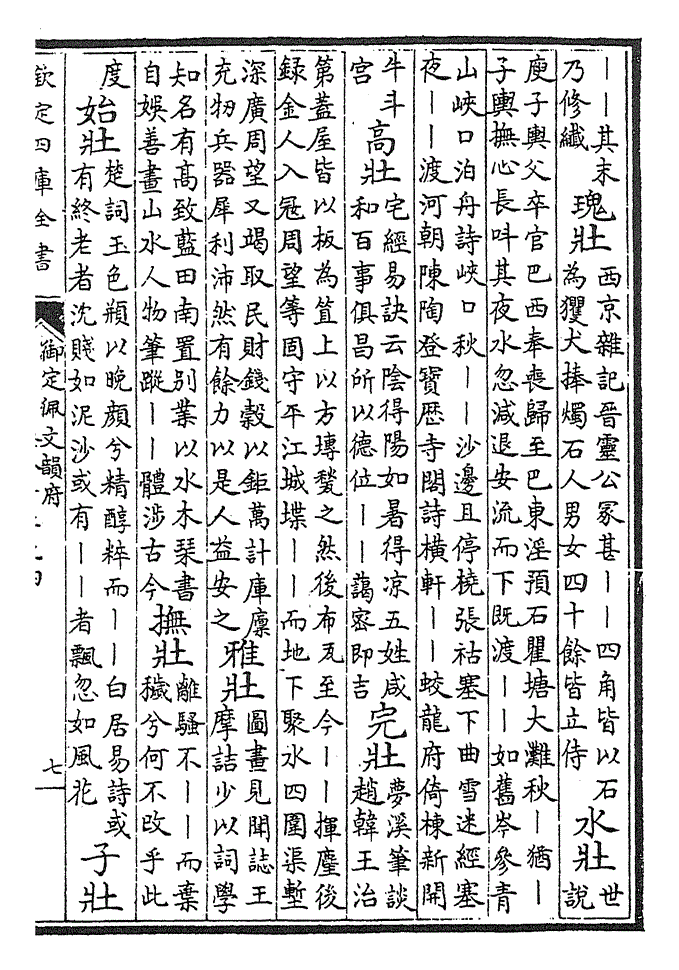 ｜｜其末
乃修纖
瑰壯
西京雜記晉靈公冢甚｜｜四角皆以石
為玃犬捧燭石人男女四十餘皆立侍
水壯
世
說
庾子輿父卒官巴西奉喪歸至巴東淫預石瞿塘大灘秋｜猶｜
子輿撫心長呌其夜水忽減退安流而下既渡｜｜如舊岑參青
山峽口泊舟詩峽口秋｜｜沙邊且停橈張祜塞下曲雪迷經塞
夜｜｜渡河朝陳陶登寶歴寺閣詩横軒｜｜蛟龍府倚棟新開
牛斗
宫
高壯
宅經易訣云陰得陽如暑得凉五姓咸
和百事俱昌所以德位｜｜藹密即吉
完壯
夢溪筆談
趙韓王治
第蓋屋皆以板為笪上以方塼甃之然後布瓦至今｜｜揮麈後
録金人入冦周望等固守平江城堞｜｜而地下聚水四圍渠塹
深廣周望又竭取民財錢穀以鉅萬計庫廪
充牣兵器犀利沛然有餘力以是人益安之
雅壯
圖畫見聞誌王
摩詰少以詞學
知名有髙致藍田南置别業以水木琴書
自娱善畫山水人物筆蹤｜｜體渉古今
撫壯
離騷不｜｜而棄
穢兮何不改乎此
度
始壯
楚詞玉色頩以晚顔兮精醇粹而｜｜白居易詩或
有終老者沈賤如泥沙或有｜｜者飄忽如風花
子壯
欽定四庫全書
御定佩文韻府